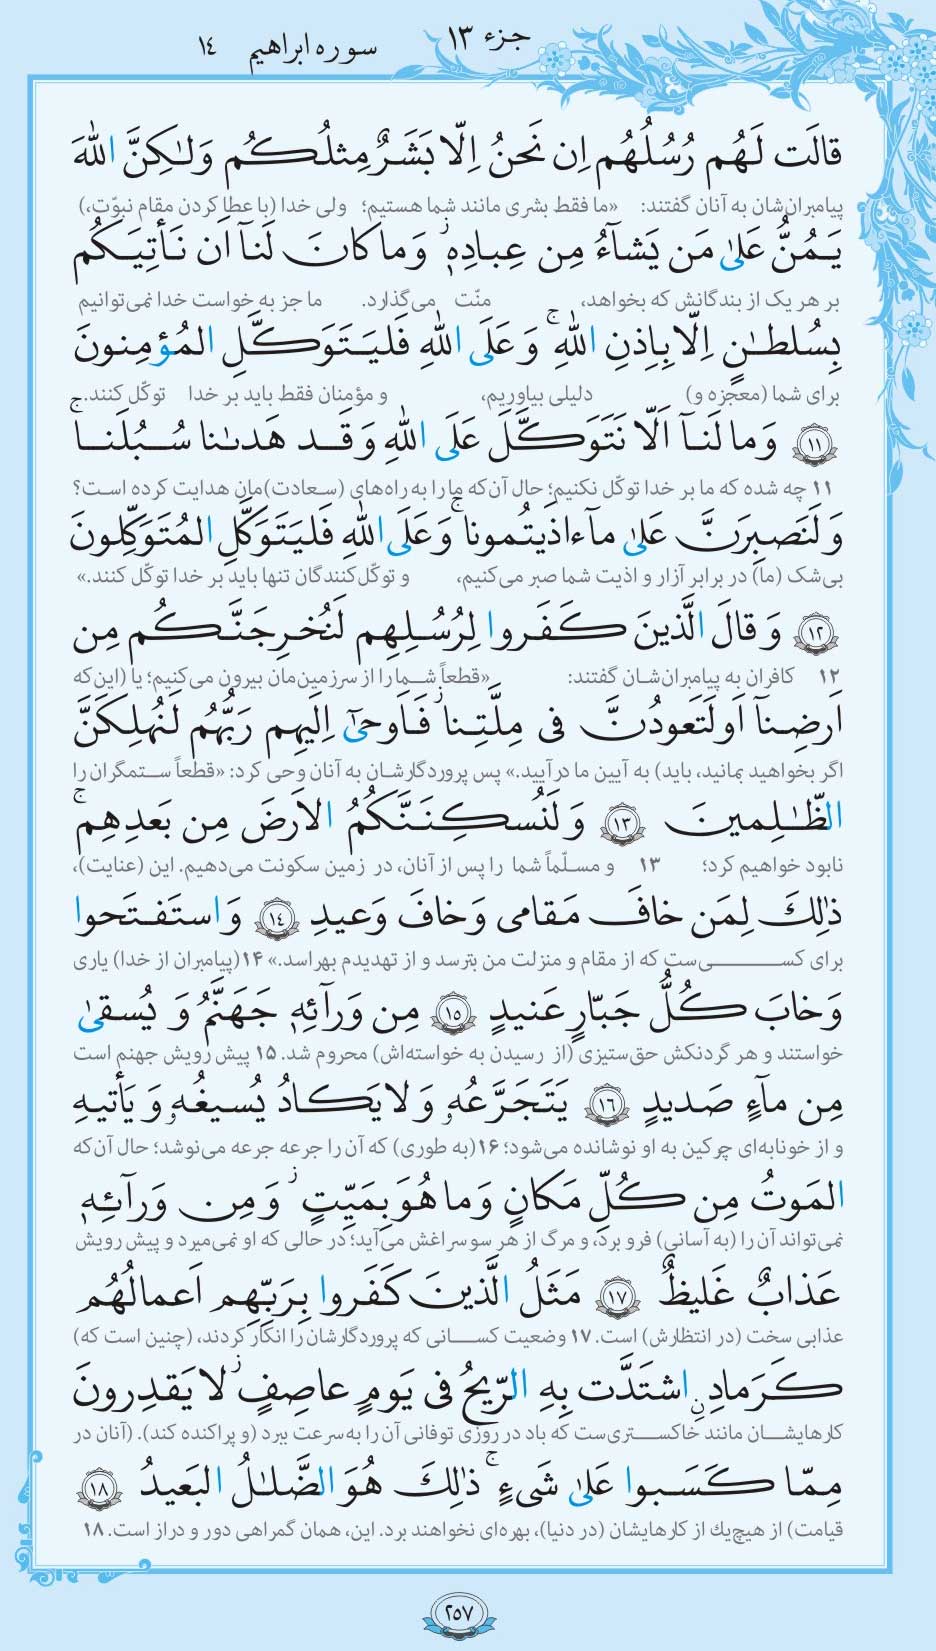 جزء ۱۳
سوره ابراهیم ۱٤
قالَت لَهُم رُسُلُهُم اِن نَحنُ اِلّا بَشَرٌ مِثلُكُم وَلٰكِنَّ اللهَ
پیامبران‌شان به آنان گفتند: «ما فقط بشری مانند شما هستیم؛ ولی خدا (با عطا کردن مقام نبوّت،)
يَمُنُّ عَلىٰ مَن يَشآءُ مِن عِبادِهٖ ۖ وَما كانَ لَنآ اَن نَأتِيَكُم
بر هر یک از بندگانش که بخواهد، منّت می‌گذارد. ما جز به خواست خدا نمی‌توانیم
بِسُلطـٰنٍ اِلّا بِاِذنِ اللهِ ۚ وَعَلَى اللهِ فَليَتَوَكَّلِ المُؤمِنونَ
برای شما (معجزه و) دلیلی بیاوریم، و مؤمنان فقط باید بر خدا توکّل کنند.
۱۱ وَما لَنآ اَلّا نَتَوَكَّلَ عَلَى اللهِ وَقَد هَدىٰنا سُبُلَنا ۚ
۱۱ چه شده که ما بر خدا توکّل نکنیم؛ حال آن‌که ما را به راه‌های (سعادت)مان هدایت کرده است؟
وَلَنَصبِرَنَّ عَلىٰ مآ ءاذَيتُمونا ۚ وَعَلَى اللهِ فَليَتَوَكَّلِ المُتَوَكِّلونَ
بی‌شک (ما) در برابر آزار و اذیت شما صبر می‌کنیم، و توکّل‌کنندگان تنها باید بر خدا توکّل کنند.»
۱۲ وَقالَ الَّذينَ كَفَروا لِرُسُلِهِم لَنُخرِجَنَّكُم مِن
۱۲ کافران به پیامبران‌شان گفتند: «قطعاً شما را از سرزمین‌مان بیرون می‌کنیم؛ یا (این‌که
اَرضِنآ اَو لَتَعودُنَّ فى مِلَّتِنا ۖ فَاَوحىٰٓ اِلَيهِم رَبُّهُم لَنُهلِكَنَّ
اگر بخواهید بمانید، باید) به آیین ما درآیید.» پس پروردگارشان به آنان وحی کرد: «قطعاً ستمگران را
الظّٰلِمينَ ۱۳ وَلَنُسكِنَنَّكُمُ الاَرضَ مِن بَعدِهِم ۚ
نابود خواهیم کرد؛ ۱۳ و مسلّماً شما را پس از آنان، در زمین سکونت می‌دهیم. این (عنایت)،
ذٰلِكَ لِمَن خافَ مَقامى وَخافَ وَعيدِ ۱٤ وَاستَفتَحوا
برای کسی‌ست که از مقام و منزلت من بترسد و از تهدیدم بهراسد.» ۱۴ (پیامبران از خدا) یاری
وَخابَ كُلُّ جَبّارٍ عَنيدٍ ۱٥ مِن وَرآئِهٖ جَهَنَّمُ وَيُسقىٰ
خواستند و هر گردنکش حق‌ستیزی (از رسیدن به خواسته‌اش) محروم شد. ۱۵ پیش رویش جهنم است
مِن مآءٍ صَديدٍ ۱٦ يَتَجَرَّعُهٗ وَلا يَكادُ يُسيغُهٗ وَيَأتيهِ
و از خونابه‌ای چرکین به او نوشانده می‌شود؛ ۱۶ (به طوری) که آن را جرعه جرعه می‌نوشد؛ حال آن‌که
المَوتُ مِن كُلِّ مَكانٍ وَما هُوَ بِمَيِّتٍ ۖ وَمِن وَرآئِهٖ
نمی‌تواند آن را (به آسانی) فرو برد، و مرگ از هر سو سراغش می‌آید؛ در حالی که او نمی‌میرد و پیش رویش
عَذابٌ غَليظٌ ۱۷ مَثَلُ الَّذينَ كَفَروا بِرَبِّهِم اَعمالُهُم
عذابی سخت (در انتظارش) است. ۱۷ وضعیت کسانی که پروردگارشان را انکار کردند، (چنین است که)
كَرَمادٍ اشتَدَّت بِهِ الرّيحُ فى يَومٍ عاصِفٍ ۖ لا يَقدِرونَ
کارهایشان مانند خاکستری‌ست که باد در روزی توفانی آن را به‌سرعت ببرد (و پراکنده کند). (آنان در
مِمّا كَسَبوا عَلىٰ شَىءٍ ۚ ذٰلِكَ هُوَ الضَّلـٰلُ البَعيدُ ۱۸
قیامت) از هیچ‌یك از کارهایشان (در دنیا)، بهره‌ای نخواهند برد. این، همان گمراهی دور و دراز است. ۱۸
۲۵۷